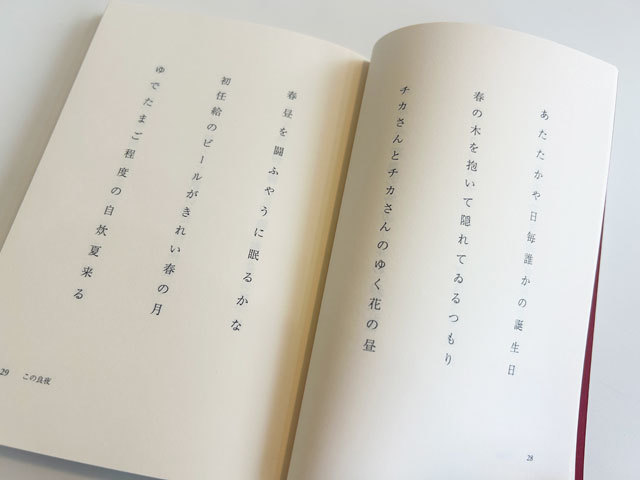 あたたかや日毎誰かの誕生日
春の木を抱いて隠れてゐるつもり
チカさんとチカさんのゆく花の昼
28
春昼を闘ふやうに眠るかな
初任給のビールがきれい春の月
ゆでたまご程度の自炊夏来る
29 この良夜